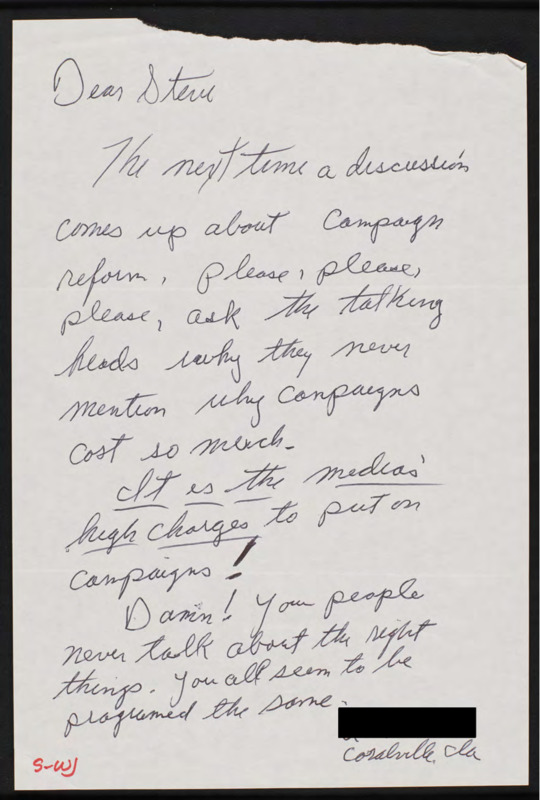 Dear Steve
The next time a discussion
comes up about Campaign
reform, please, please,
please, ask the talking
heads why they never
mention why Campaigns
cost so much.
It is the medias'
high charges to put on
campaigns!
Damn! Your people
never talk about the right
things. You all seem to be
programed the same.
Coralville, Ia
S-WJ